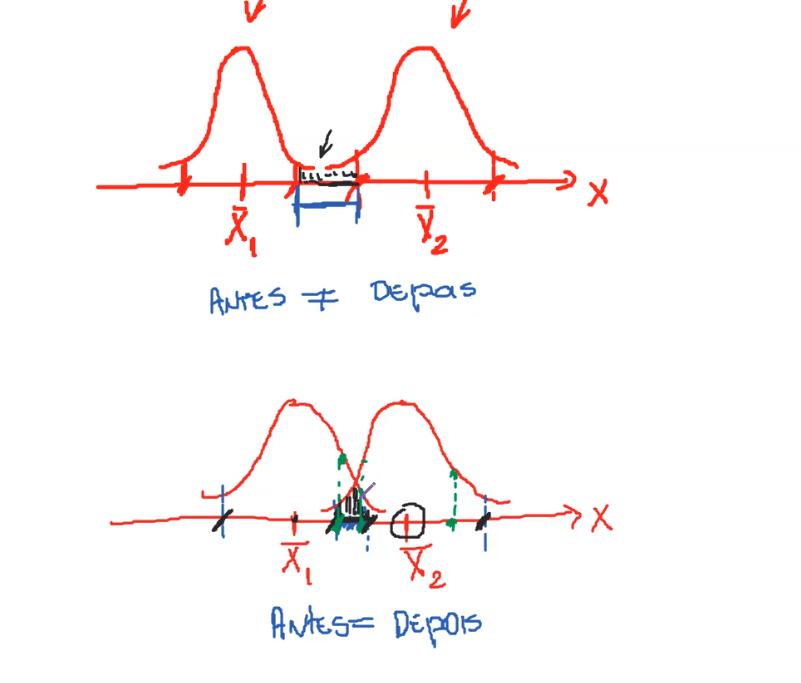 X
X̅₁ X̅₂
ANTES ≠ DEPOIS
X
X̅₁ X̅₂
ANTES = DEPOIS